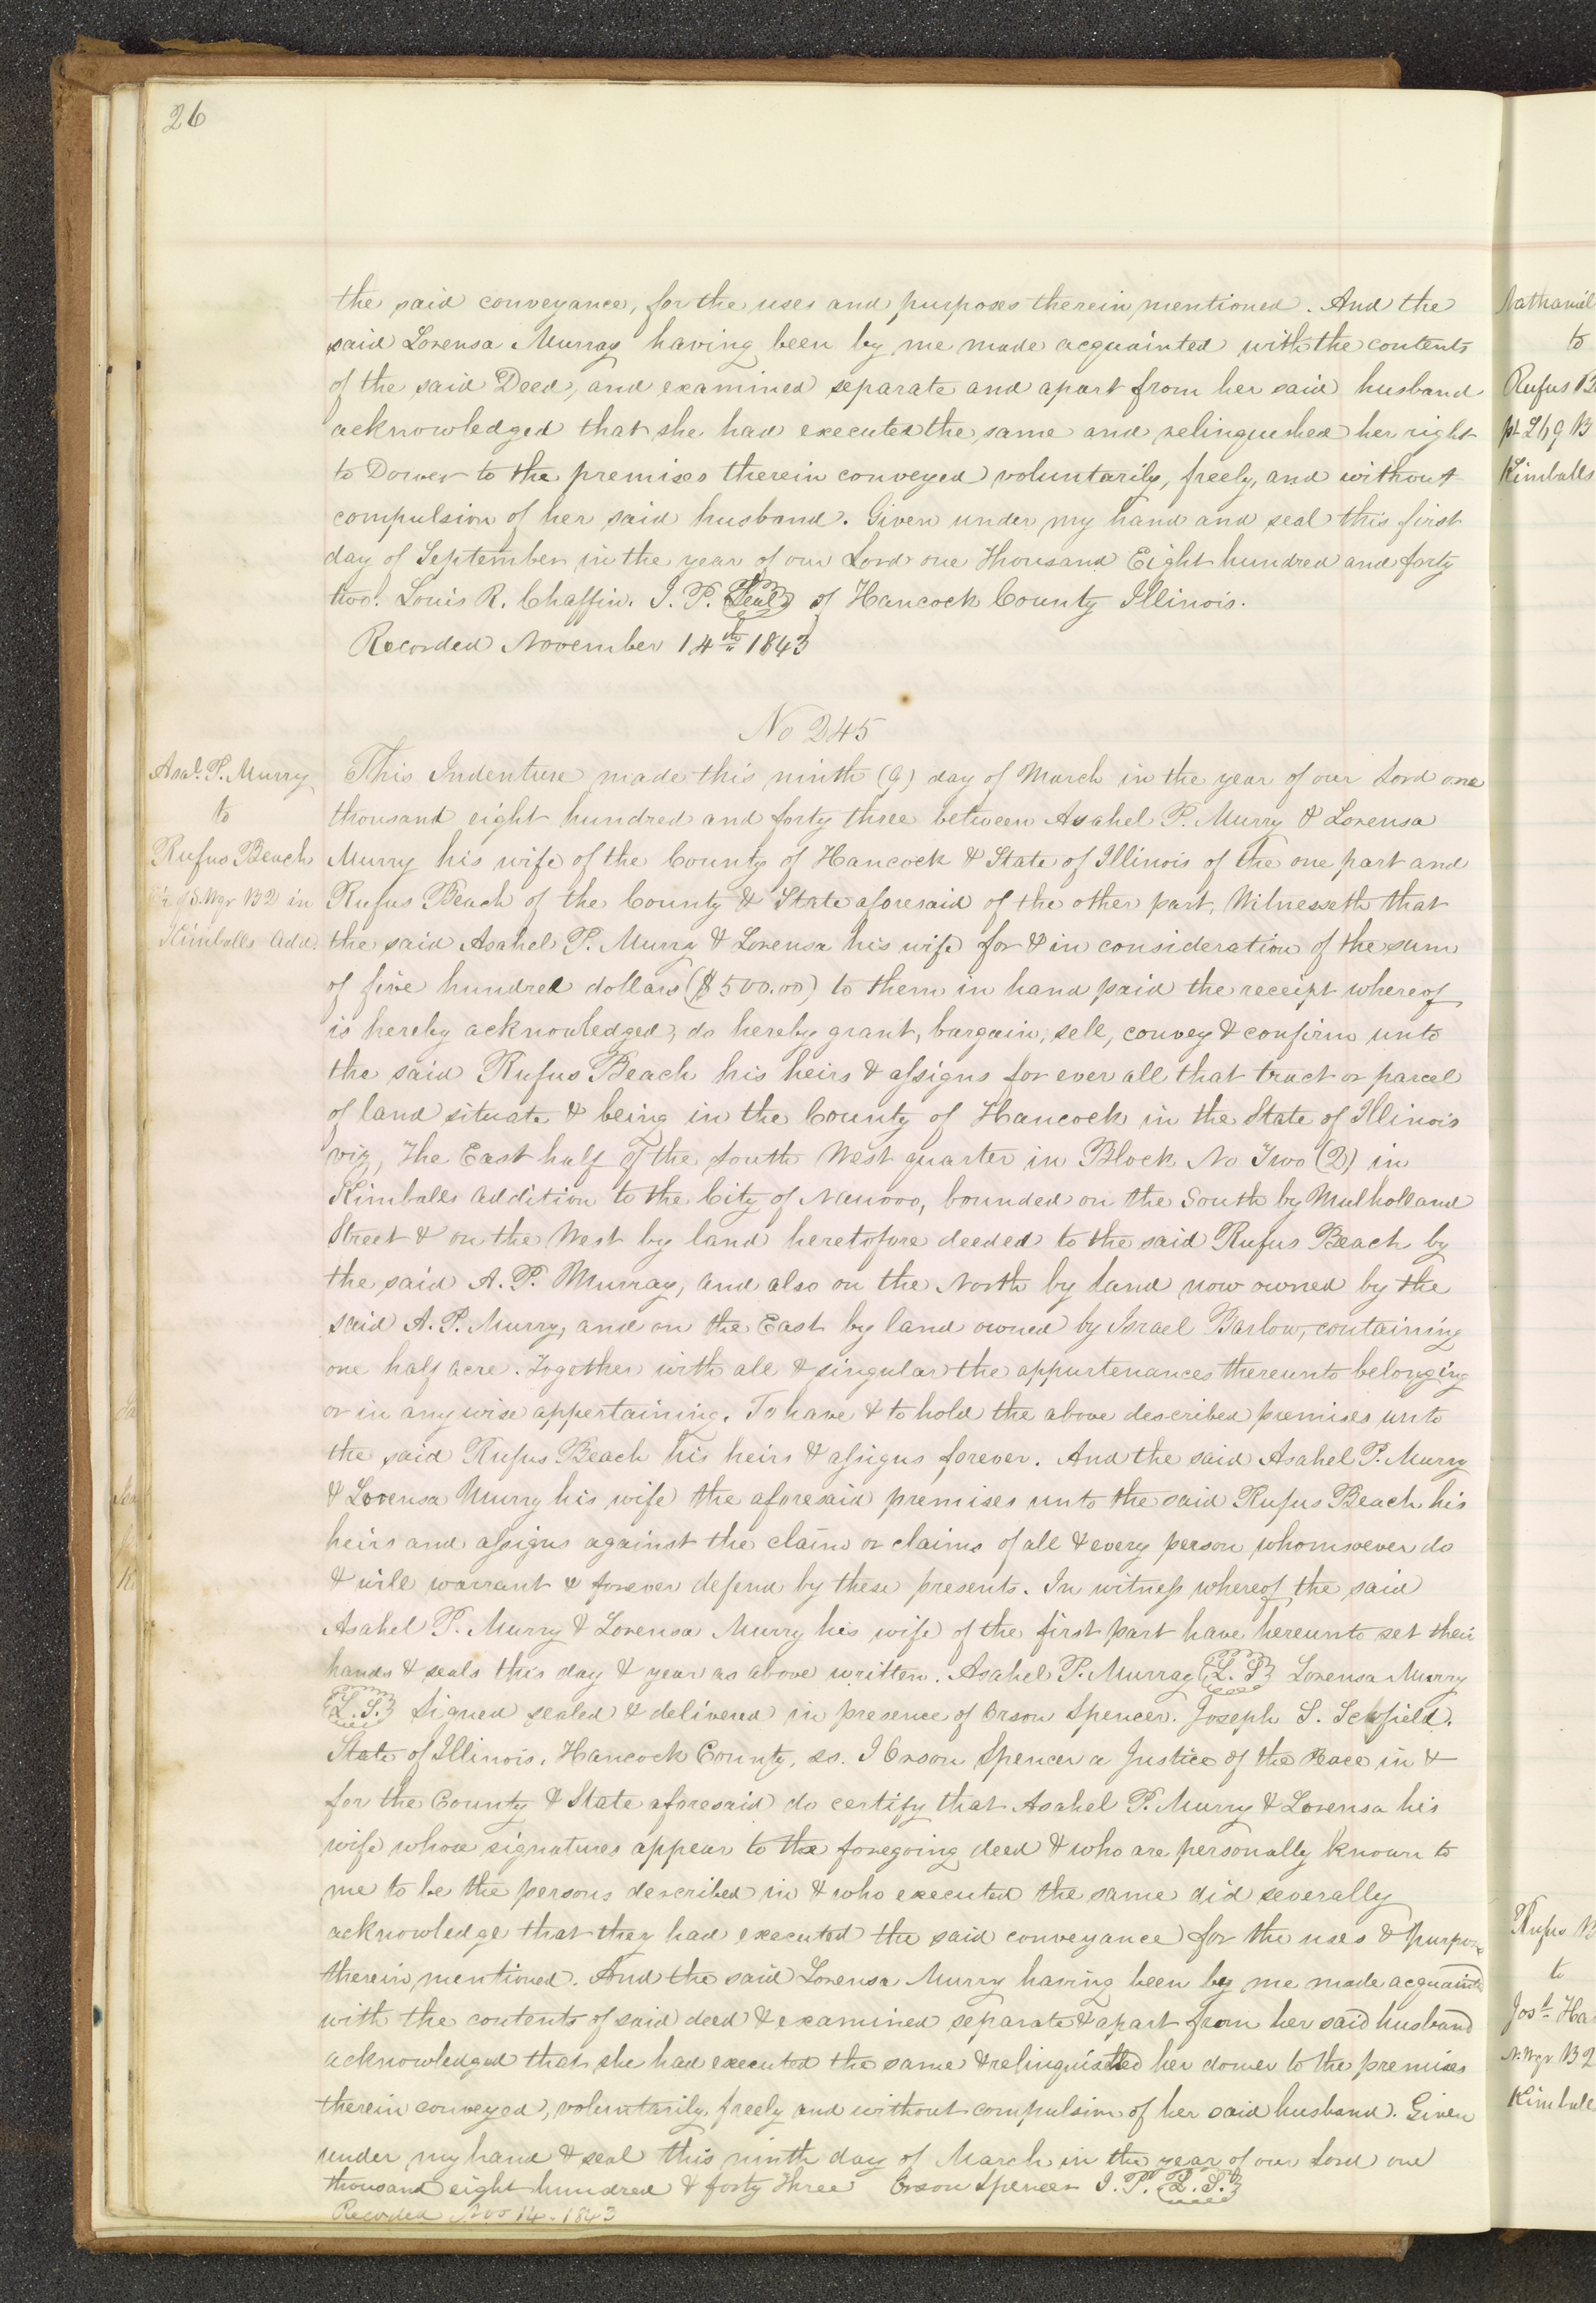 26
the said conveyance, for the uses and purposes therein mentioned. And the
said Lorensa Murray having been by me made acquainted with the contents
of the said Deed, and examined separate and apart from her said husband
acknowledged that she had executed the same and relinquished her right
to Dower to the premises therein conveyed voluntarily, freely, and without
compulsion of her said husband. Given under my hand and seal this first
day of September in the year of our Lord one Thousand Eight hundred and forty
two. Louis R. Chaffin. J. P. Seal of Hancock County Illinois.
Recorded November 14th 1843
No 245
Asal. P. Murry
to
Rufus Beach
S. Wqr B2 in
Kimballs Add.
This Indenture made this ninth (9) day of March in the year of our Lord one
thousand eight hundred and forty three between Asahel P. Murry & Lorensa
Murry his wife of the County of Hancock & State of Illinois of the one part and
Rufus Beach of the County & State aforesaid of the other part, Witnesseth that
the said Asahel P. Murry & Lorensa his wife for & in consideration of the sum
of five hundred dollars ($500.00) to them in hand paid the receipt whereof
is hereby acknowledged, do hereby grant, bargain, sell, convey & confirm unto
the said Rufus Beach his heirs & assigns for ever all that tract or parcel
of land situate & being in the County of Hancock in the State of Illinois
viz, The East half of the South West quarter in Block No Two (2) in
Kimballs Addition to the City of Nauvoo, bounded on the South by Mulholland
Street & on the West by land heretofore deeded to the said Rufus Beach by
the said A. P. Murray, and also on the North by land now owned by the
said A. P. Murry, and on the East by land owned by Israel Barlow, containing
one half acre. Together with all & singular the appurtenances thereunto belonging
or in any wise appertaining. To have & to hold the above described premises unto
the said Rufus Beach his heirs & assigns forever. And the said Asahel P. Murry
& Lorensa Murry his wife the aforesaid premises unto the said Rufus Beach his
heirs and assigns against the claim or claims of all & every person whomsoever do
& will warrant & forever defend by these presents. In witness whereof the said
Asahel P. Murry & Lorensa Murry his wife of the first part have hereunto set their
hands & seals this day & year as above written. Asahel P. Murray L. S. Lorensa Murry
L. S. Signed sealed & delivered in presence of Orson Spencer. Joseph S. Schofield.
State of Illinois, Hancock County, ss. I Orson Spencer a Justice of the Peace in &
for the County & State aforesaid do certify that Asahel P. Murry & Lorensa his
wife whose signatures appear to the foregoing deed & who are personally known to
me to be the persons described in & who executed the same did severally
acknowledge that they had executed the said conveyance for the uses & purpose
therein mentioned. And the said Lorensa Murry having been by me made acquainted
with the contents of said deed & examined separate & apart from her said husband
acknowledged that she had executed the same & relinquished her dower to the premises
therein conveyed, voluntarily, freely and without compulsion of her said husband. Given
under my hand & seal this ninth day of March in the year of our Lord one
thousand eight hundred & forty three Orson Spencer J. P. L. S.
Recorded Nov 14. 1843
Nathaniel
to
Rufus B
Kimballs
Rufus B
to
Josh Ha
N. Wqr B2
Kimball